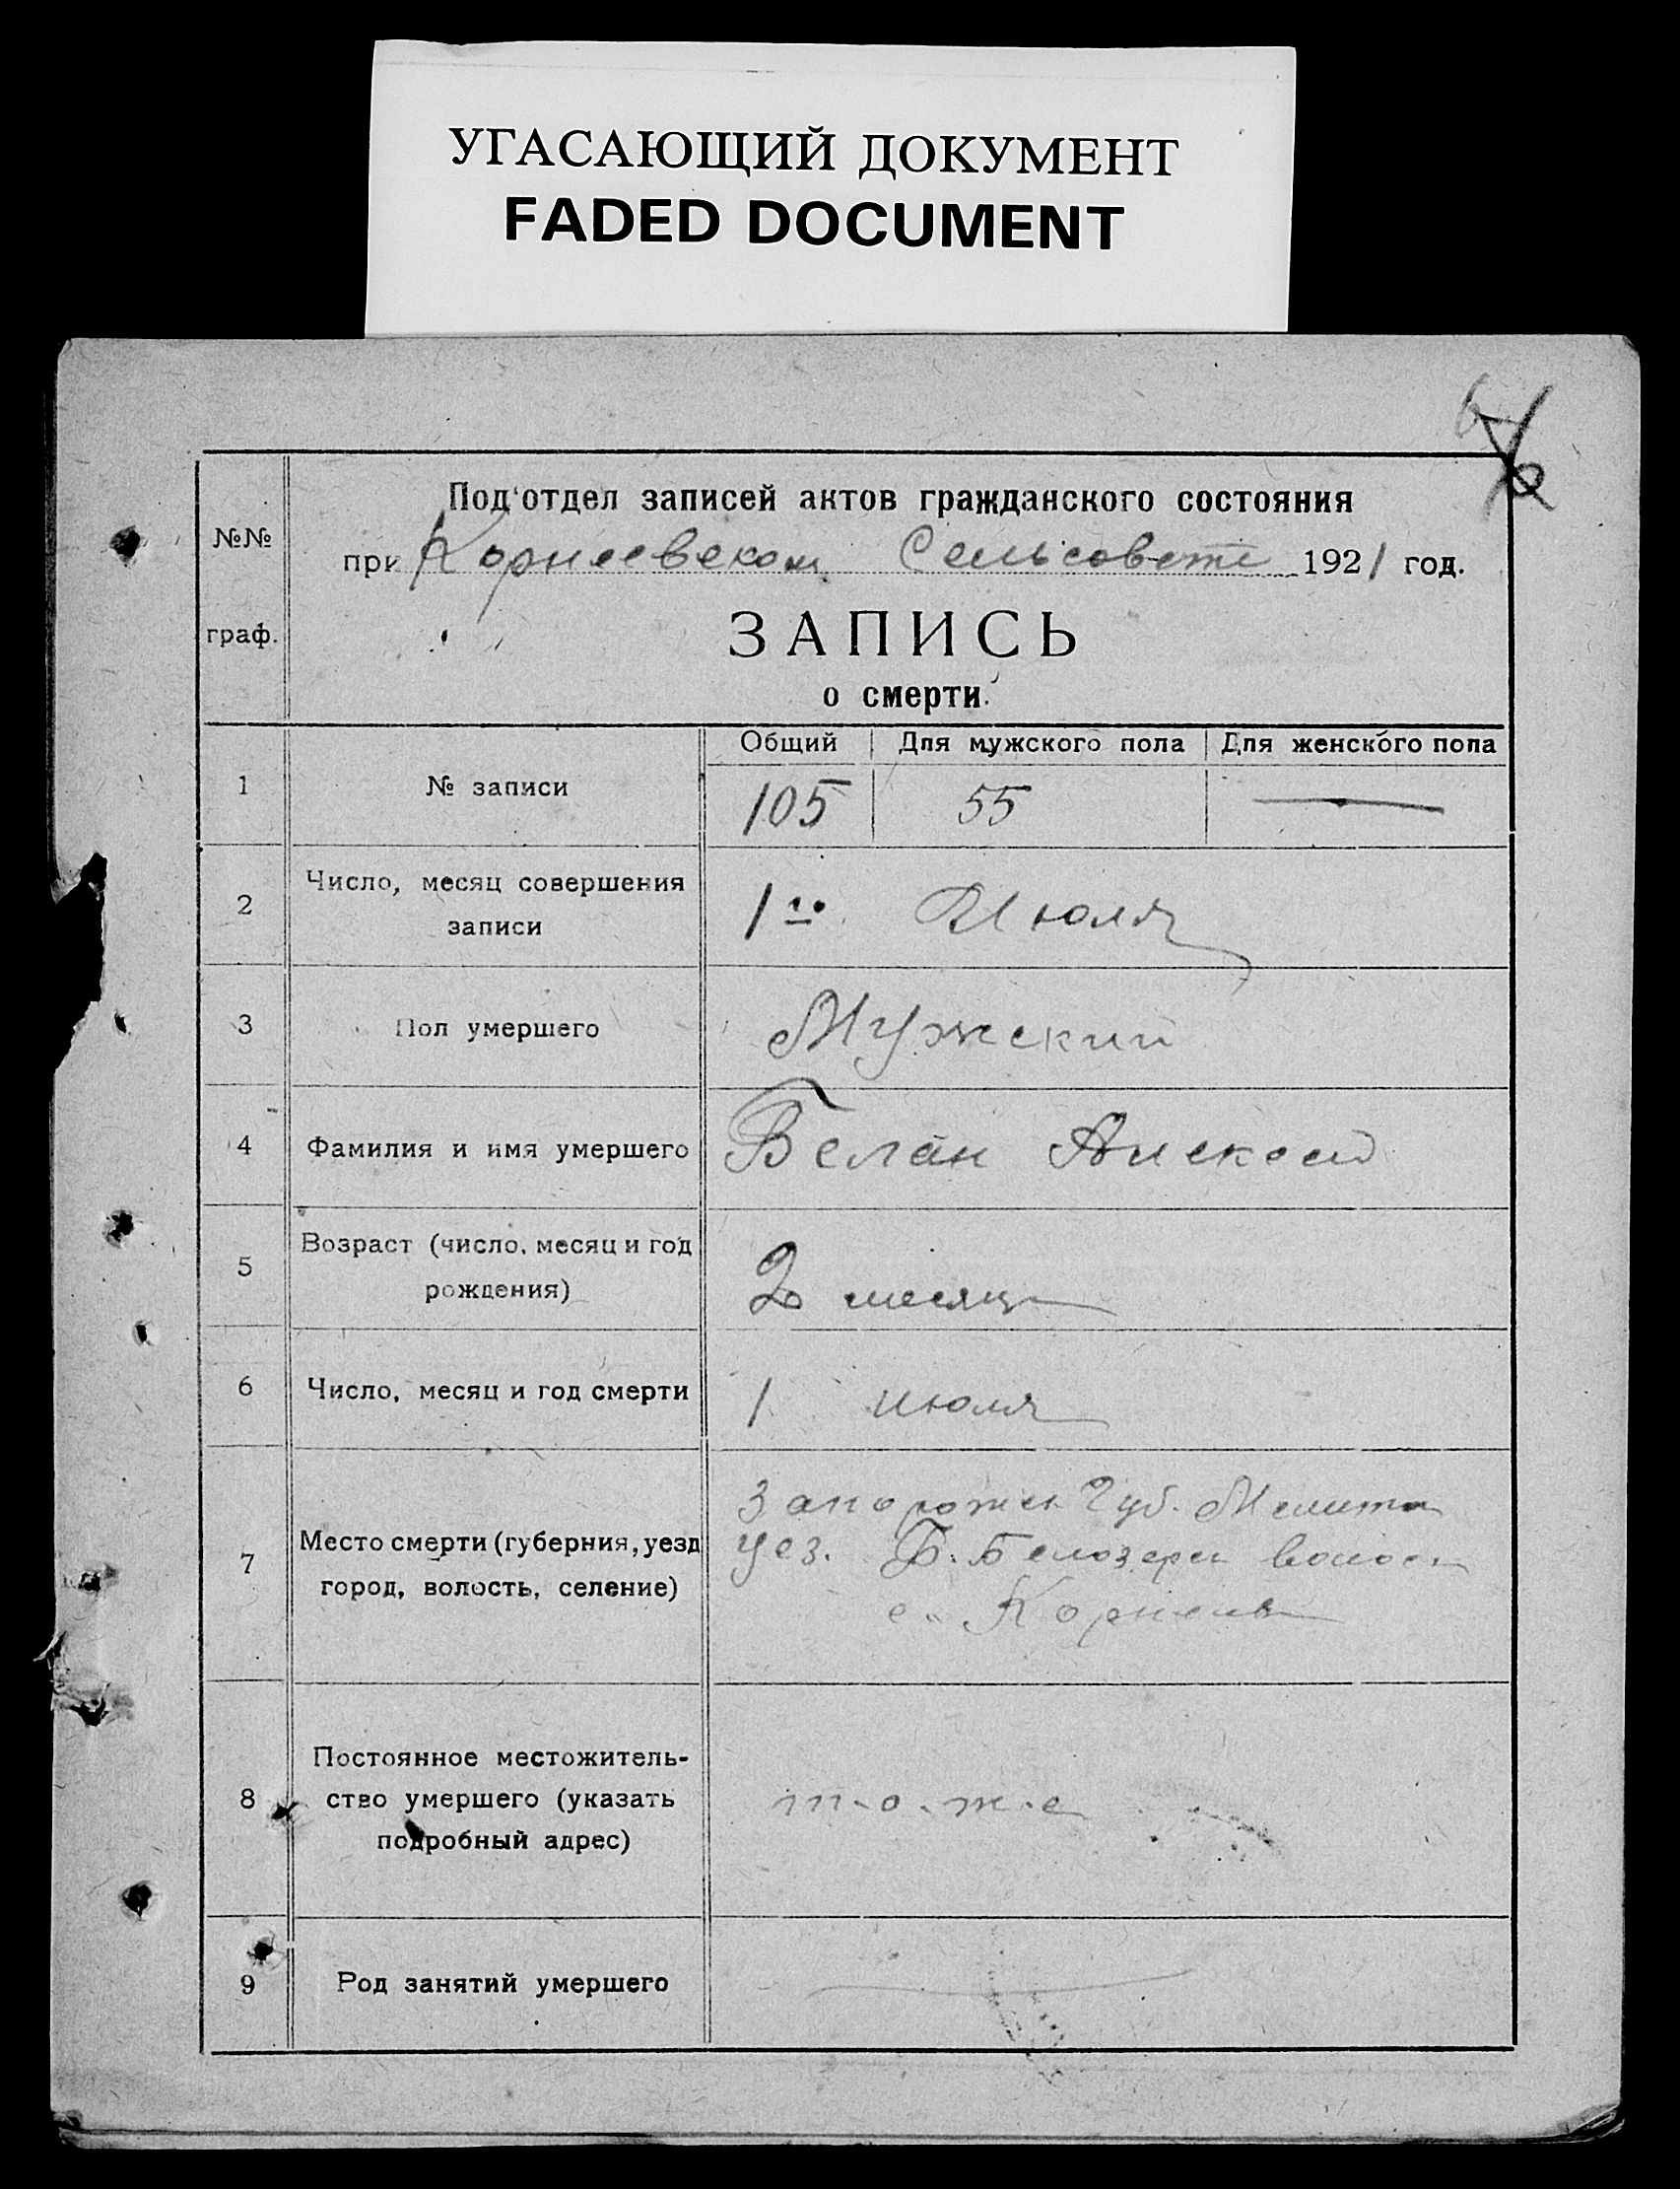 УГАСАЮЩИЙ ДОКУМЕНТ
FADED DOCUMENT
№№ граф.
Подотдел записей актов гражданского состояния
при Корнеевском Сельсовете 1921 год.
ЗАПИСЬ
о смерти.
Общий Для мужского пола Для женского пола
1 № записи 105 55 —
2 Число, месяц совершения
записи 1го Июля
3 Пол умершего Мужский
4 Фамилия и имя умершего Белан Алексей
5 Возраст (число, месяц и год
рождения) 2 месяца
6 Число, месяц и год смерти 1 июля
Запорожск Губ. Мелитоп
7 Место смерти (губерния, уезд Уез. Б. Белозерск волость
город, волость, селение) с. Корнеевк
8 Постоянное местожитель-
ство умершего (указать т-о-ж-е
подробный адрес)
9 Род занятий умершего —